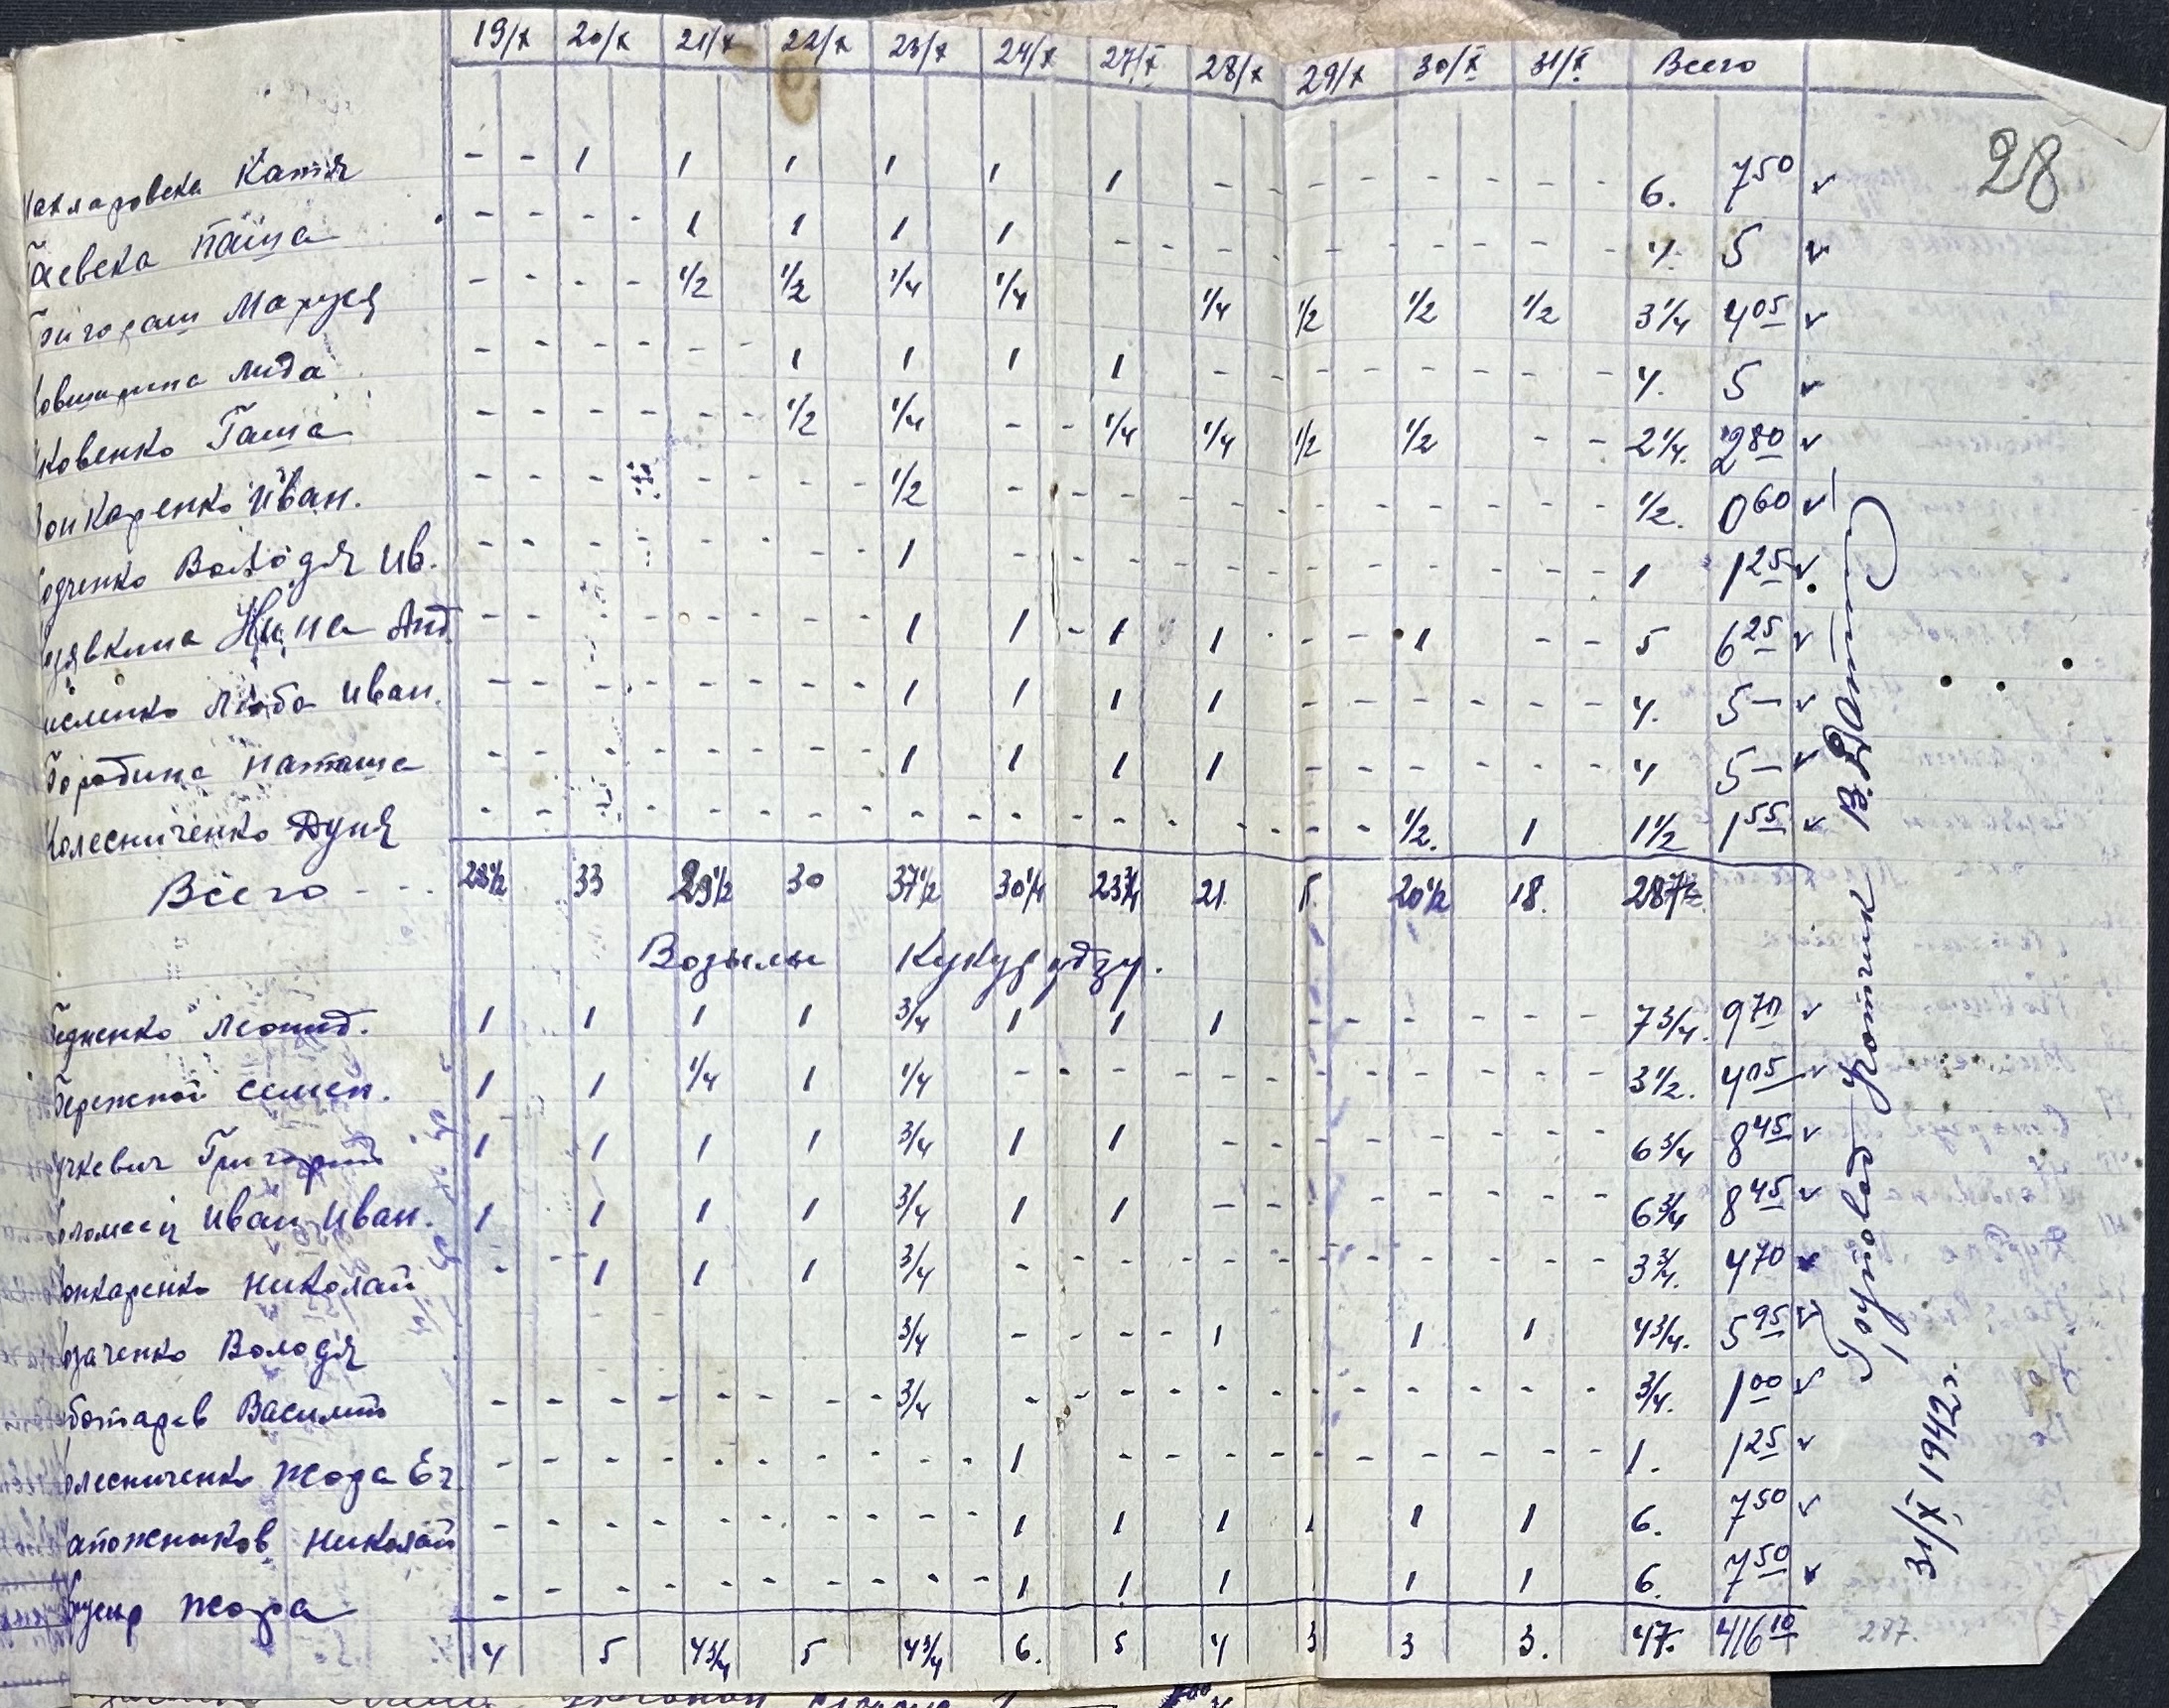 19/X 20/X 21/X 22/X 23/X 24/X 27/X 28/X 29/X 30/X 31/X Всего
28
Катя - - 1 1 1 1 1 1 - - - - - - - - 6. 7 50 v
аевска Паша - - - - 1 1 1 1 - - - - - - - - - - 4. 5 v
ригораш Маруся - - - - 1/2 1/2 1/4 1/4 1/4 1/2 1/2 1/2 3 1/4 4 05 v
Лида - - - - - - 1 1 1 1 - - - - - - - - 4. 5 v
ковенко Гаша - - - - - - 1/2 1/4 - - 1/4 1/4 1/2 1/2 - - 2 1/4. 2 80 v
онкаренко Иван. - - - - - - - - 1/2 - - - - - - - - - - 1/2. 0 60 v
одченко Володя Ив. - - - - - - - - 1 - - - - - - - - - - 1 1 25 v
Нина Анд. - - - - - - - - 1 1 - 1 1 - - 1 - - 5 6 25 v
Люба Иван. - - - - - - - - 1 1 1 1 - - - - - - 4. 5 — v
Бородина Наташа - - - - - - - - 1 1 1 1 - - - - - - 4 5 — v
Колесниченко Дуня - - - - - - - - - - - - - - - - - - 1/2. 1 1 1/2 1 55 v
Всего - - - 28 1/2 33 29 1/2 30 37 1/2 30 1/4 23 3/4 21. 20 1/2 18. 287
Возылы Кукурудзу.
едненко Леонид. 1 1 1 1 3/4 1 1 1 - - - - - - 7 3/4. 9 70 v
Бережной Семен. 1 1 1/4 1 1/4 - - - - - - - - - - - - 3 1/2. 4 05 v
чкевич Григорий 1 1 1 1 3/4 1 1 - - - - - - - - 6 3/4 8 45 v
Иван Иван. 1 1 1 1 3/4 1 1 - - - - - - - - 6 3/4 8 45 v
онкаренко Николай - - 1 1 1 3/4 - - - - - - - - - - - - 3 3/4. 4 70 v
заченко Володя 3/4 - - - - 1 1 1 4 3/4. 5 95 v
ботарев Василий - - - - - - - - 3/4 - - - - - - - - - - - - 3/4. 1 00 v
олесниченко Жора Ег. - - - - - - - - - - 1 - - - - - - - - - - 1. 1 25 v
апожников Николай - - - - - - - - - - 1 1 1 1 1 1 6. 7 50 v
Жора - - - - - - - - - - 1 1 1 1 1 6. 7 50 v
4 5 4 3/4 5 4 3/4 6. 5 4 3 3 3. 47. 416 10
287.
31/X 1942 г.